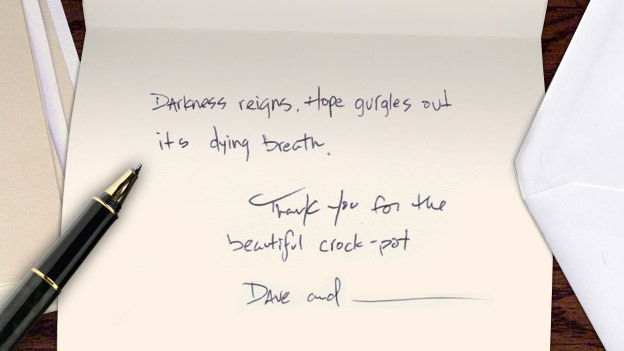 Darkness reigns. Hope gurgles out
its dying breath.
Thank you for the
beautiful crock-pot
Dave and